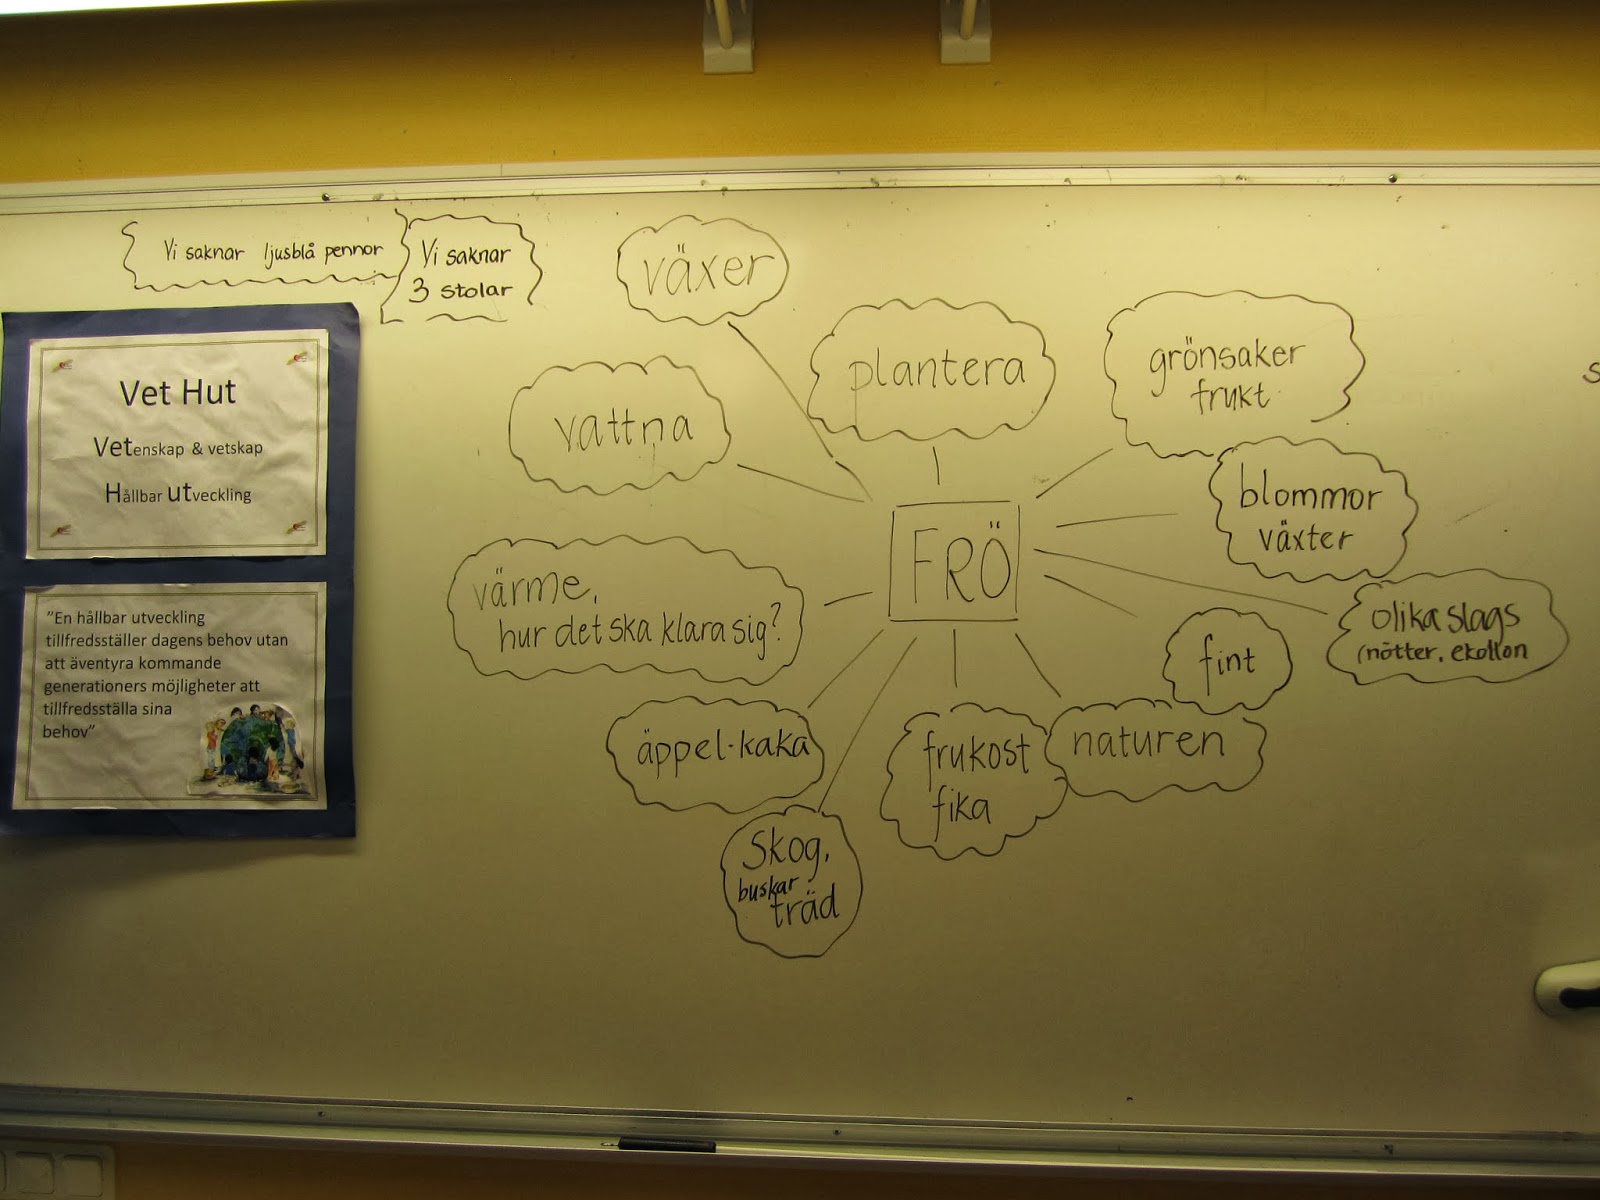 Vi saknar ljusblå pennor
Vi saknar
3 stolar
växer
plantera
grönsaker
frukt
vattna
blommor
växter
FRÖ
värme,
hur det ska klara sig?
olika slags
(nötter, ekollon
fint
äppel-kaka
frukost
fika
naturen
Skog,
buskar
träd
Vet Hut
Vetenskap & vetskap
Hållbar utveckling
"En hållbar utveckling
tillfredsställer dagens behov utan
att äventyra kommande
generationers möjligheter att
tillfredsställa sina
behov"